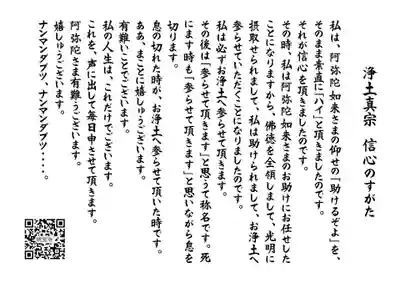 浄土真宗 信心のすがた
私は、阿弥陀如来さまの仰せの「助けるぞよ」を、
そのまま素直に「ハイ」と頂きましたのです。
それが信心を頂きましたのです。
その時、私は阿弥陀如来さまのお助けにお任せした
ことになりますから、佛徳を全領しまして、光明に
摂取せられまして、私は助けられまして、お浄土へ
参らせていただくことになりましたのです。
私は必ずお浄土へ参らせて頂きます。
その後は「参らせて頂きます」と思うて称名です。死
にます時も「参らせて頂きます」と思いながら息を
切ります。
息の切れた時が、お浄土へ参らせて頂いた時です。
ああ、まことに嬉しゅうございます。
有難いことでございます。
私の人生は、これだけでございます。
これを、声に出して毎日申させて頂きます。
阿弥陀さま有難うございます。
嬉しゅうございます。
ナンマンダブツ、ナンマンダブツ・・・・。